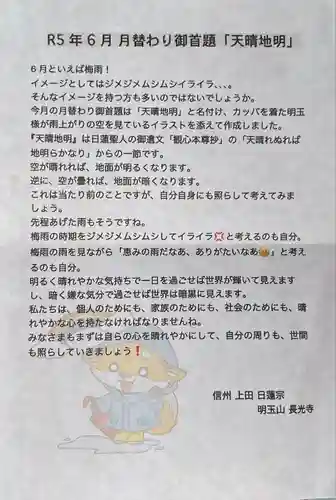 R5年6月 月替わり御首題「天晴地明」
6月といえば梅雨！
イメージとしてはジメジメムシムシイライラ、、、。
そんなイメージを持つ方も多いのではないでしょうか。
今月の月替わり御首題は「天晴地明」と名付け、カッパを着た明玉
様が雨上がりの空を見ているイラストを添えて作成しました。
『天晴地明』は日蓮聖人の御遺文「観心本尊抄」の「天晴れぬれば
地明らかなり」からの一節です。
空が晴れれば、地面が明るくなります。
逆に、空が曇れば、地面が暗くなります。
これは当たり前のことですが、自分自身にも照らして考えてみま
しょう。
先程あげた雨もそうですね。
梅雨の時期をジメジメムシムシしてイライラ💢と考えるのも自分。
梅雨の雨を見ながら「恵みの雨だなあ、ありがたいなあ😊」と考え
るのも自分。
明るく晴れやかな気持ちで一日を過ごせば世界が輝いて見えます
し、暗く嫌な気分で過ごせば世界は暗黒に見えます。
私たちは、個人のためにも、家族のためにも、社会のためにも、晴
れやかな心を持たなければなりませんね。
みなさまもまずは自らの心を晴れやかにして、自分の周りも、世間
も照らしていきましょう❗
信州 上田 日蓮宗
明玉山 長光寺